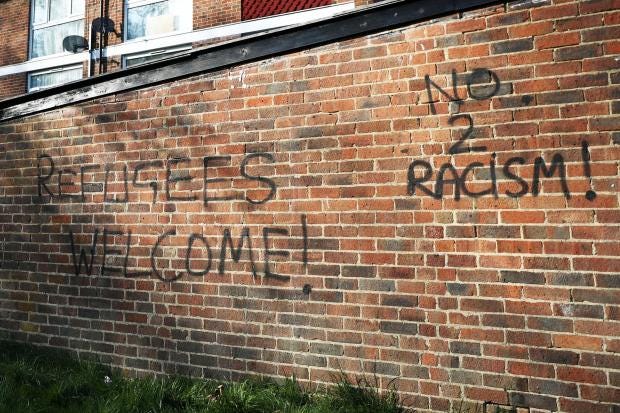 REFUGEES
WELCOME!
NO
2
RACISM!